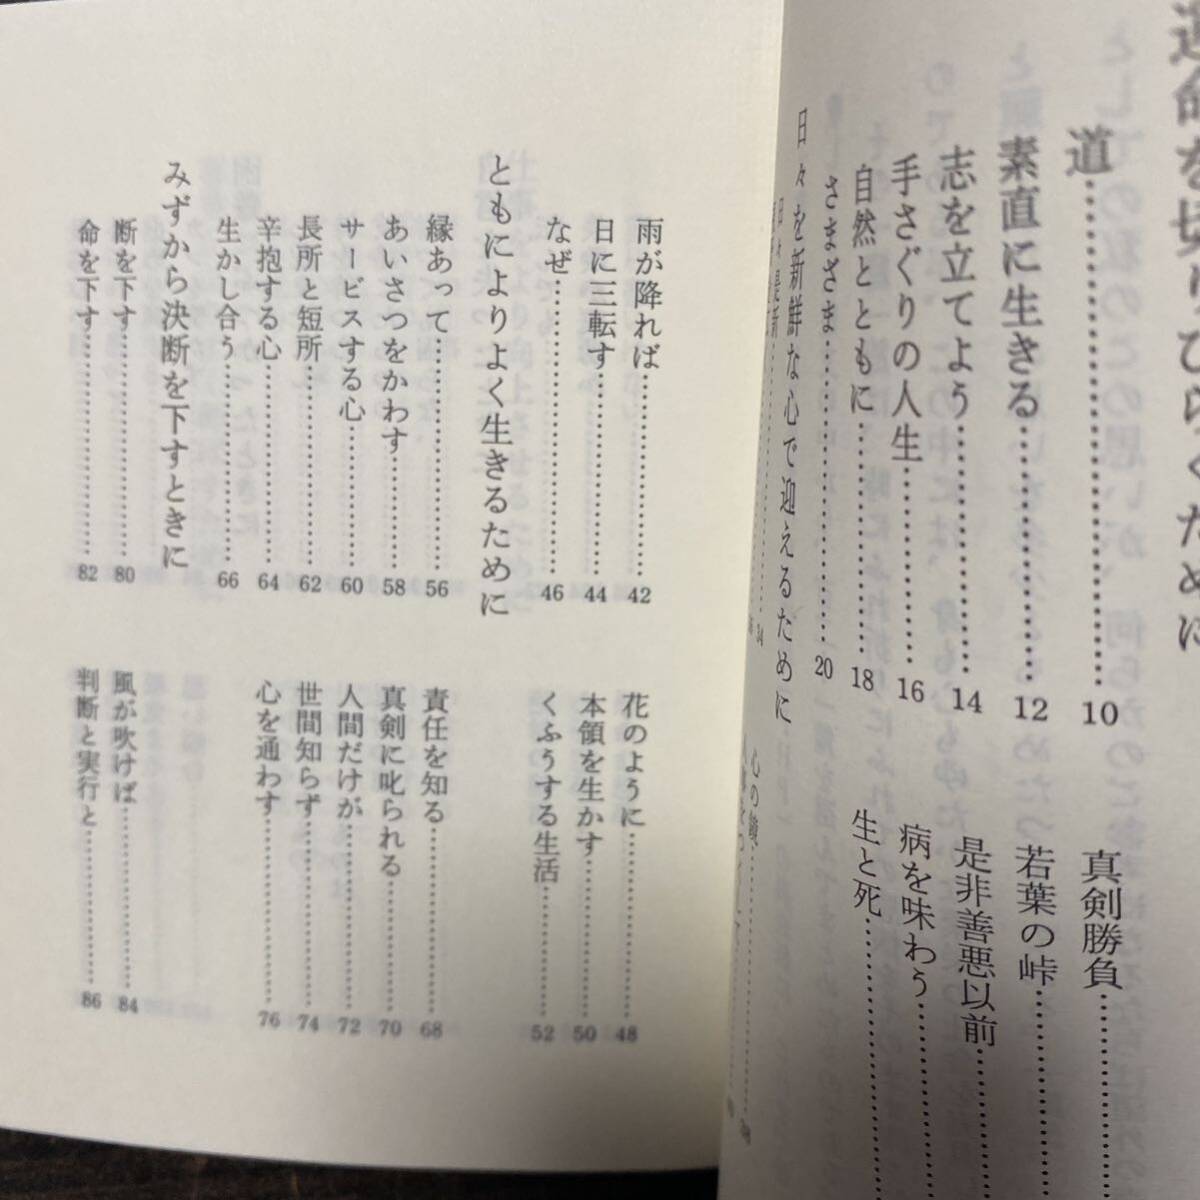 運命を切りひらくために
道……………………10
素直に生きる……………………12
志を立てよう……………………14
手さぐりの人生……………………16
自然とともに……………………18
さまざま……………………20
真剣勝負……………………
若葉の峠……………………
是非善悪以前……………………
病を味わう……………………
生と死……………………
日々を新鮮な心で迎えるために
日々是新……………………34
心の鏡……………………
雨が降れば……………………42
日に三転す……………………44
なぜ……………………46
花のように……………………48
本領を生かす……………………50
くふうする生活……………………52
ともによりよく生きるために
縁あって……………………56
あいさつをかわす……………………58
サービスする心……………………60
長所と短所……………………62
辛抱する心……………………64
生かし合う……………………66
責任を知る……………………68
真剣に叱られる……………………70
人間だけが……………………72
世間知らず……………………74
心を通わす……………………76
みずから決断を下すときに
断を下す……………………80
命を下す……………………82
風が吹けば……………………84
判断と実行と……………………86